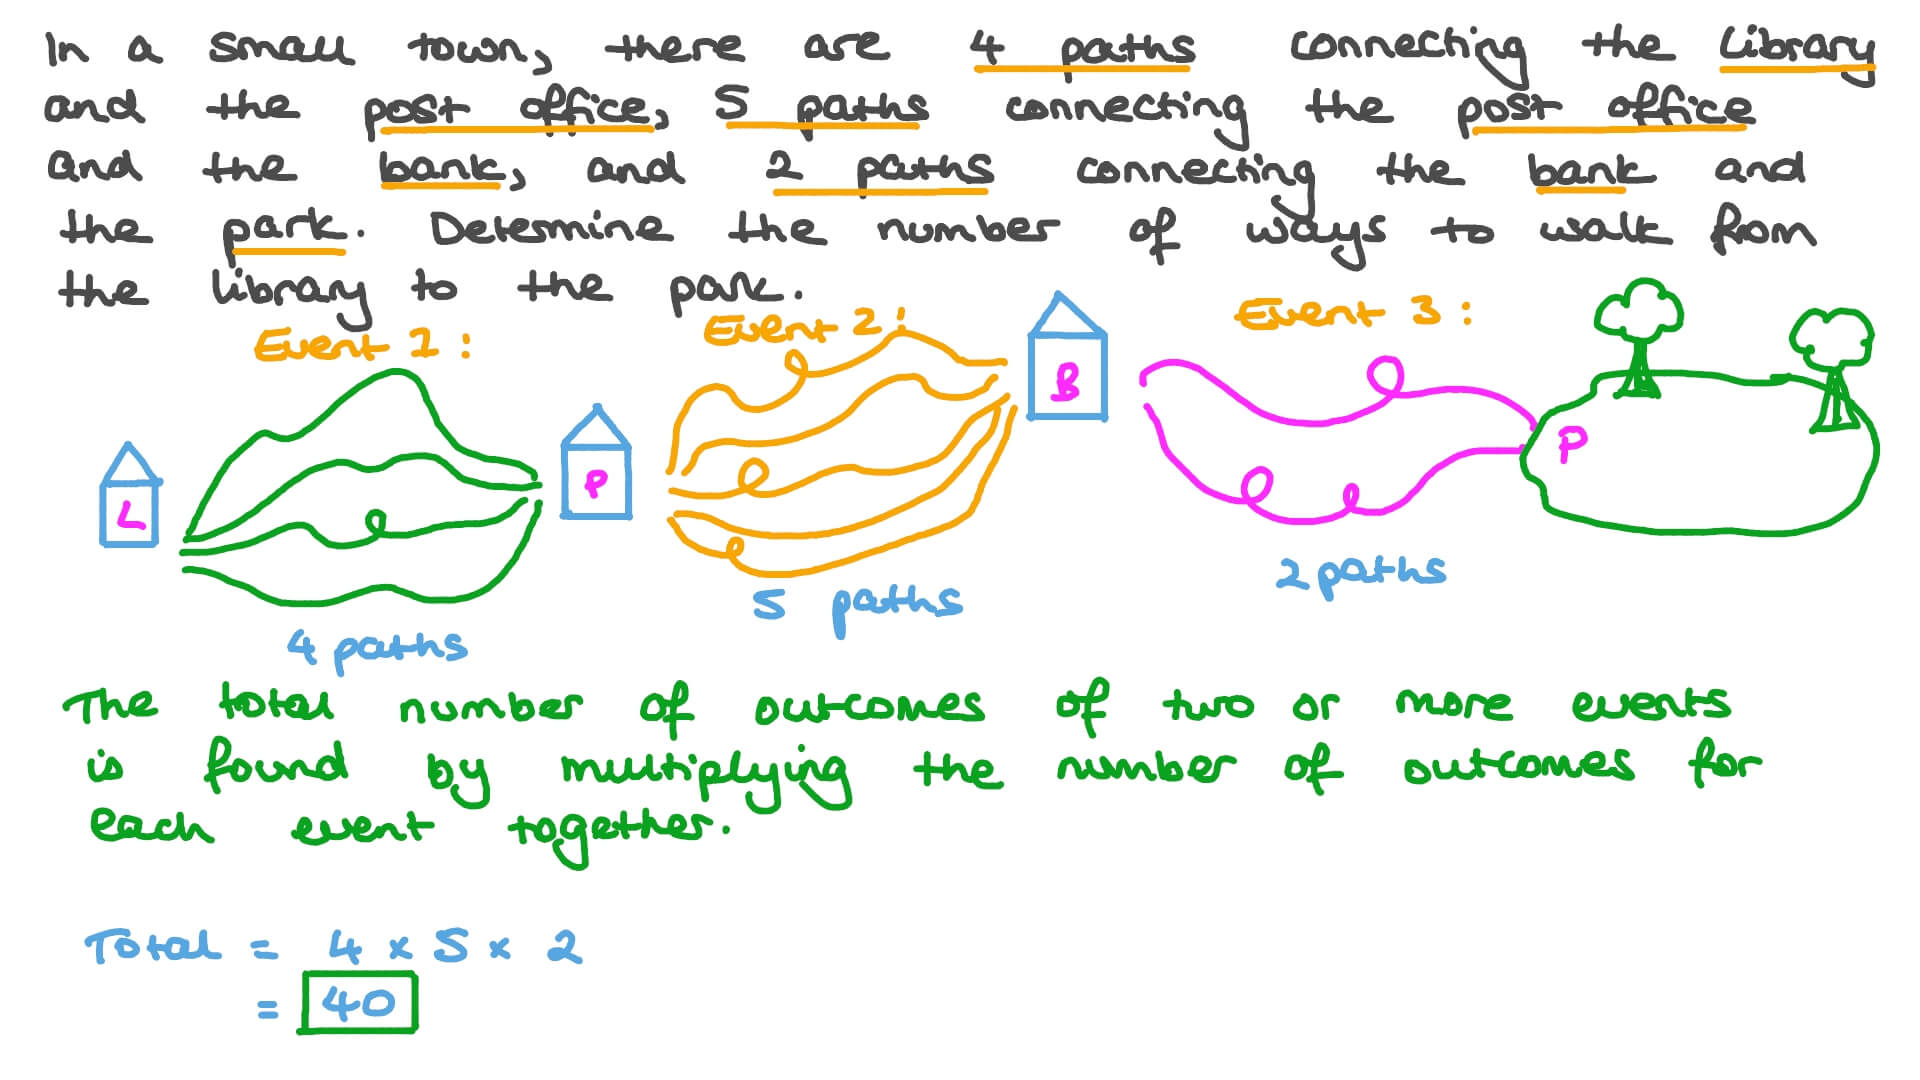 In a small town, there are 4 paths connecting the library
and the post office, 5 paths connecting the post office
and the bank, and 2 paths connecting the bank and
the park. Determine the number of ways to walk from
the library to the park.
Event 1:
Event 2:
Event 3:
L
P
B
P
4 paths
5 paths
2 paths
The total number of outcomes of two or more events
is found by multiplying the number of outcomes for
each event together.
Total = 4 x 5 x 2
= 40